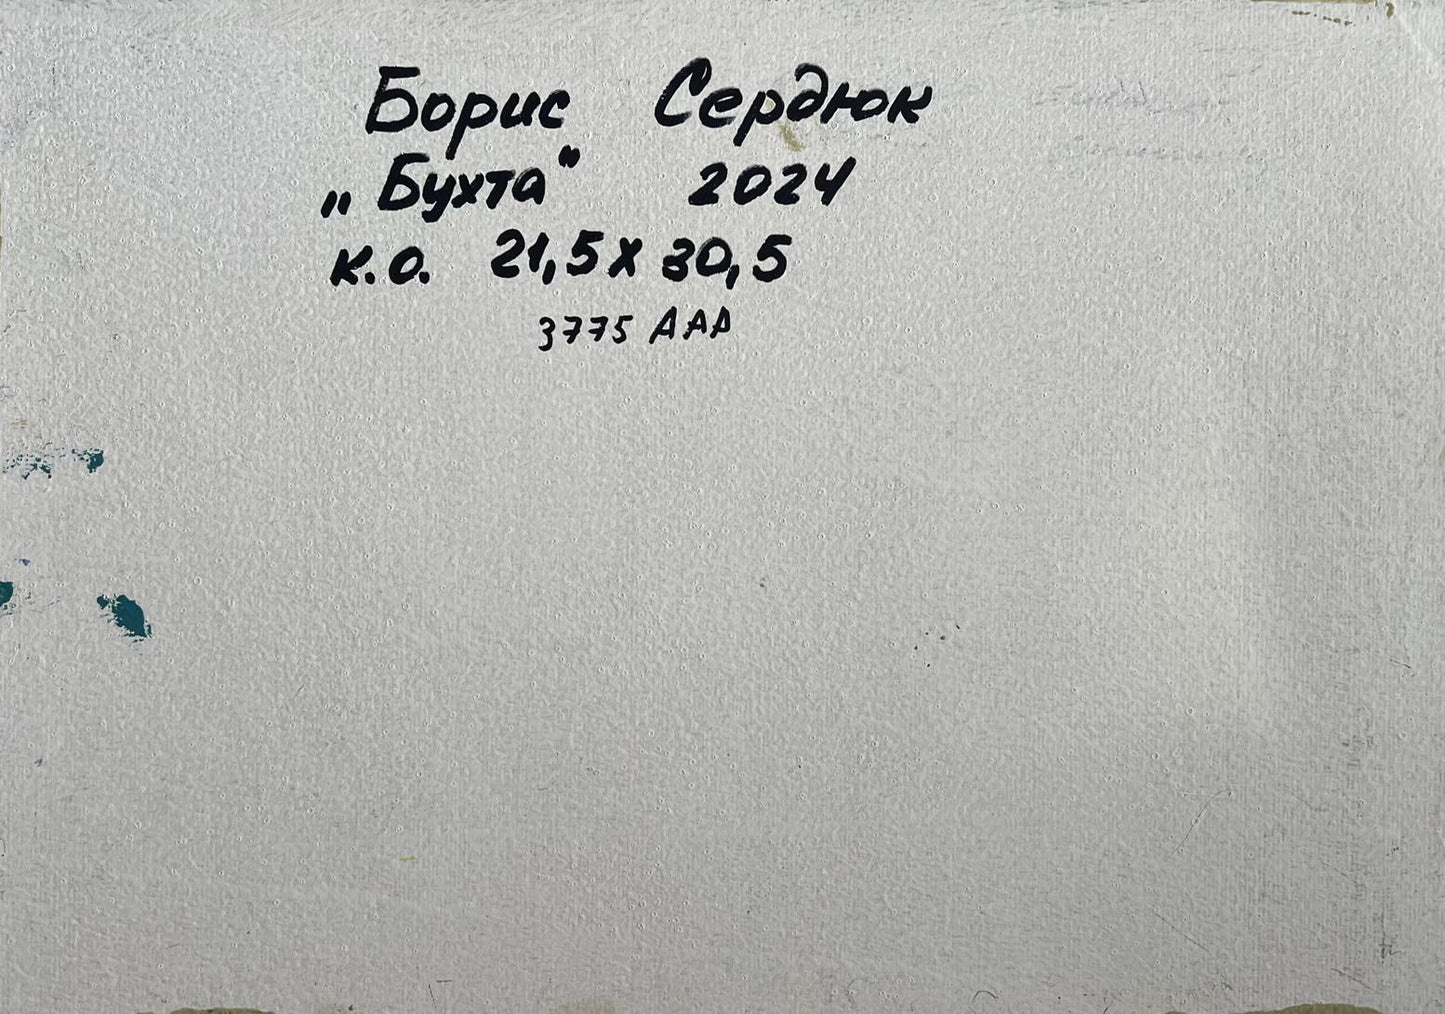 Борис Сердюк
„Бухта“ 2024
К.О. 21,5 х 30,5
3775 ААА